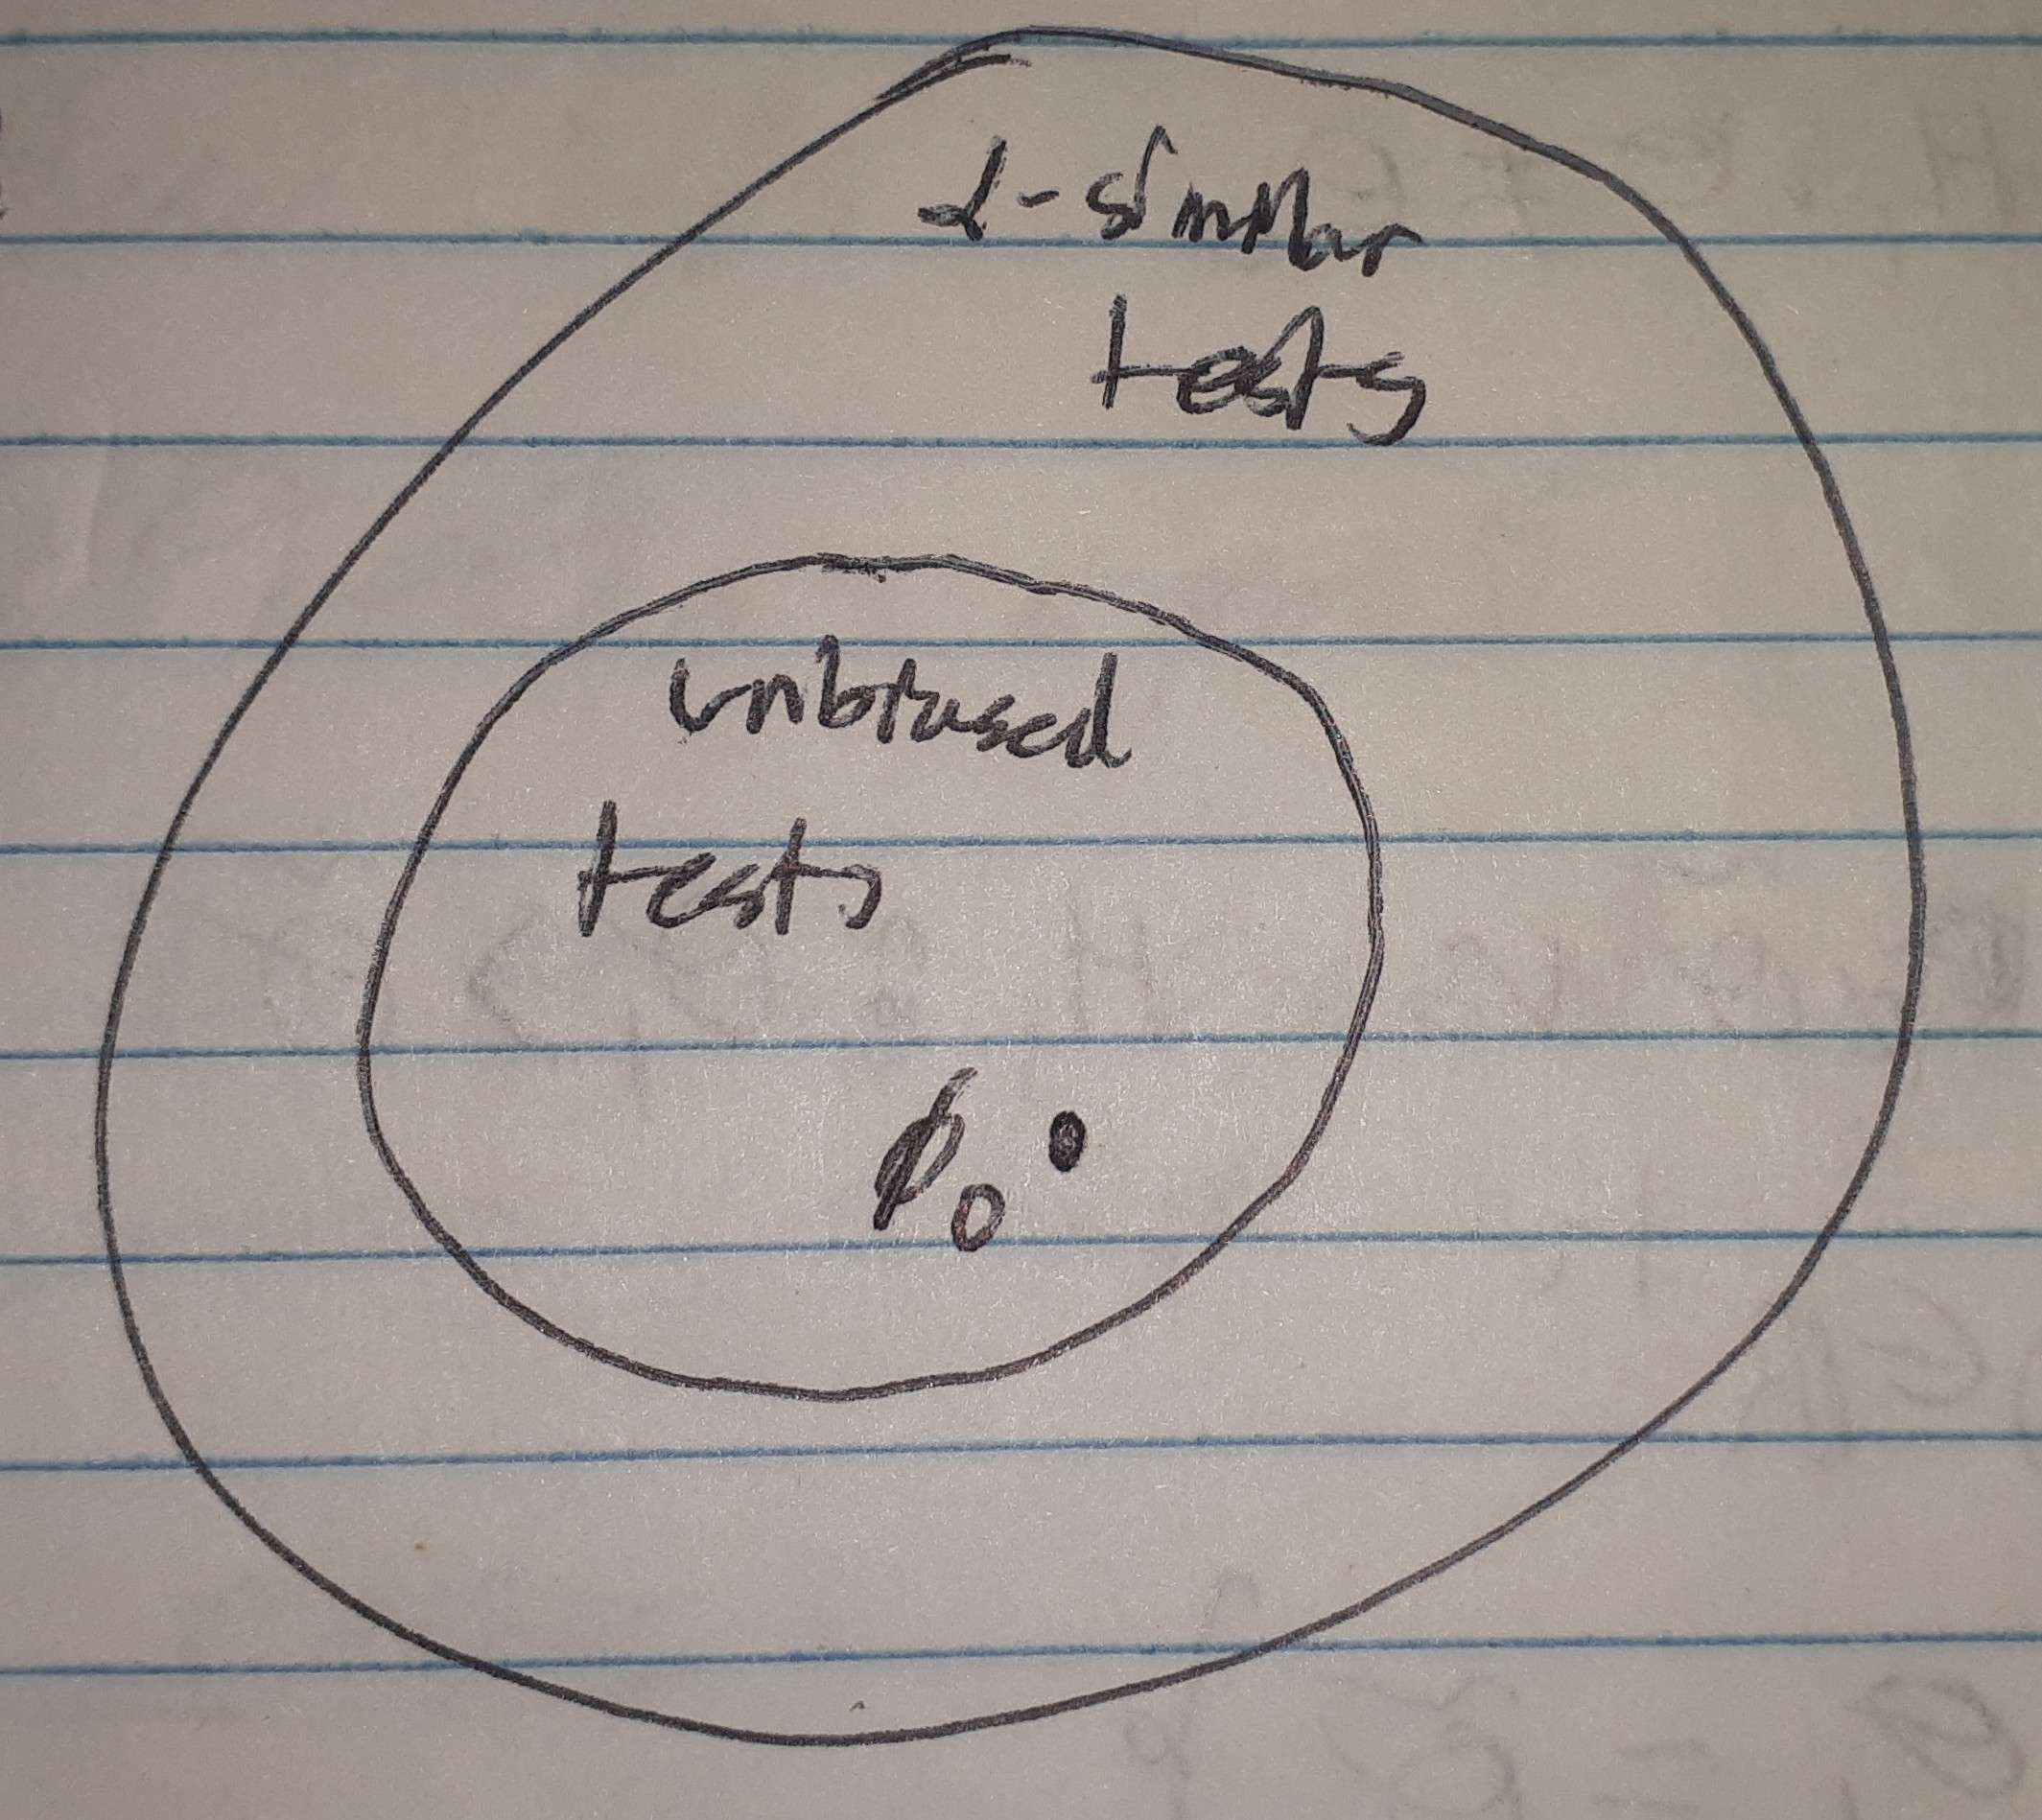 α-similar
tests
unbiased
tests
ϕ₀